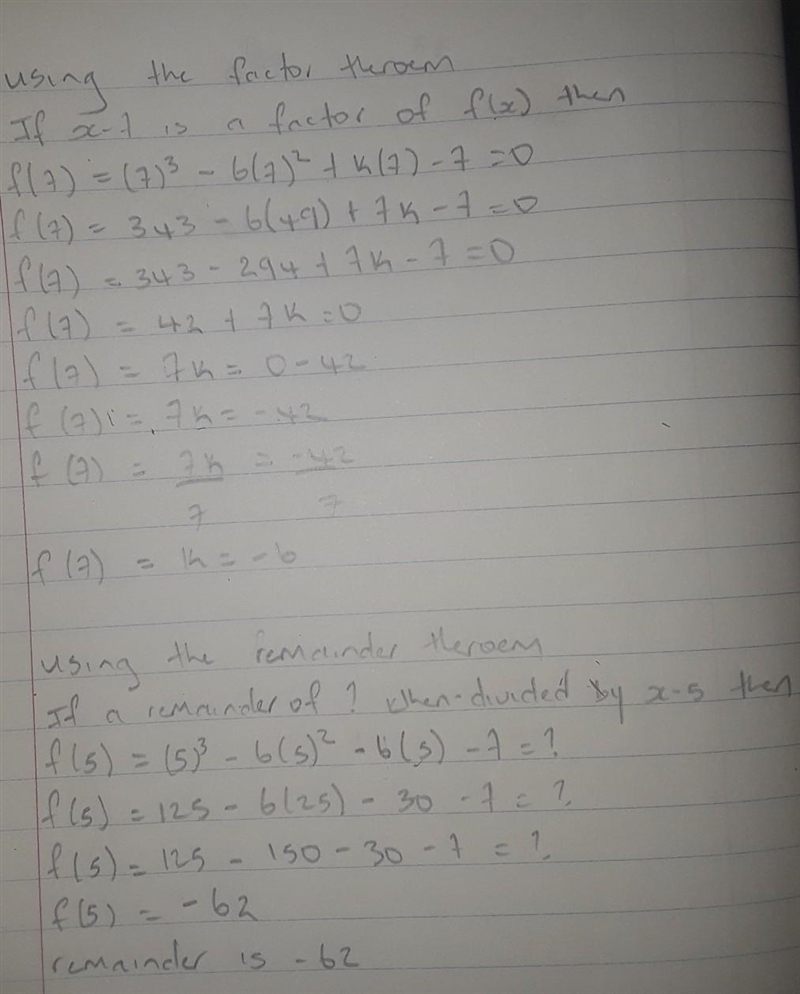 using the factor theroem
If x-7 is a factor of f(x) then
f(7) = (7)³ - 6(7)² + k(7) - 7 = 0
f(7) = 343 - 6(49) + 7k - 7 = 0
f(7) = 343 - 294 + 7k - 7 = 0
f(7) = 42 + 7k = 0
f(7) = 7k = 0 - 42
f(7) = 7k = -42
f(7) = 7k/7 = -42/7
f(7) = k = -6
using the remainder theroem
If a remainder of ? when divided by x-5 then
f(5) = (5)³ - 6(5)² - 6(5) - 7 = ?
f(5) = 125 - 6(25) - 30 - 7 = ?
f(5) = 125 - 150 - 30 - 7 = ?
f(5) = -62
remainder is -62